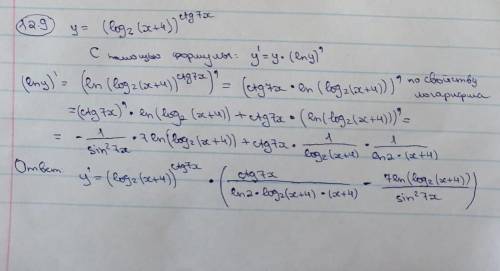 12.9 y = (log₂(x+4))^ctg7x
С помощью формулы: y' = y · (lny)'
(lny)' = (ln(log₂(x+4))^ctg7x)' = (ctg7x · ln(log₂(x+4)))' по свойству логарифма
= (ctg7x)' · ln(log₂(x+4)) + ctg7x · (ln(log₂(x+4)))' =
= - 1/sin²7x · 7ln(log₂(x+4)) + ctg7x · 1/log₂(x+4) · 1/ln2·(x+4)
Ответ y' = (log₂(x+4))^ctg7x · (ctg7x/ln2·log₂(x+4)·(x+4) - 7ln(log₂(x+4))/sin²7x)